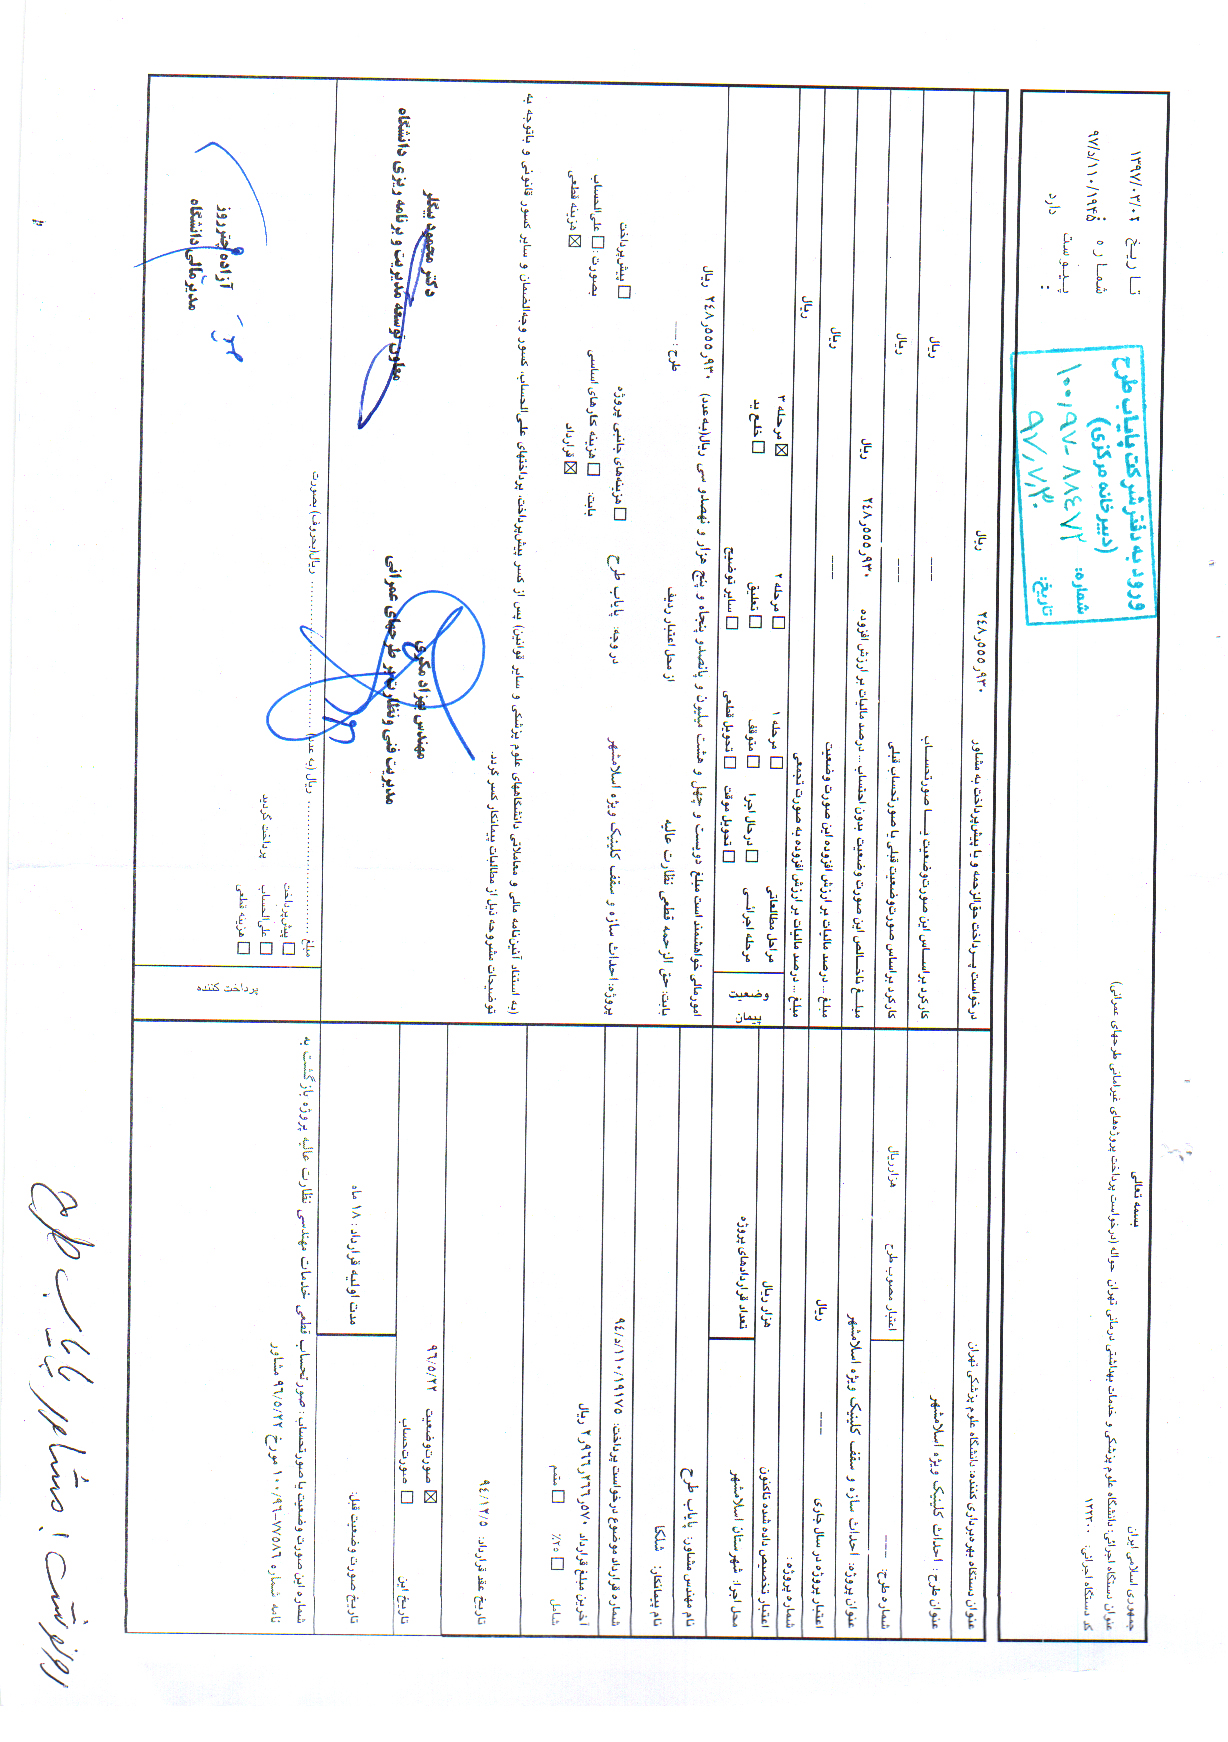 بسمه تعالی
جمهوری اسلامی ایران
عنوان دستگاه اجرائی: دانشگاه علوم پزشکی و خدمات بهداشتی درمانی تهران حواله (درخواست پرداخت پروژه‌های غیرامانی طرحهای عمرانی)
کد دستگاه اجرائی: ۱۲۳۳۰۰
تاریخ ۱۳۹۷/۰۳/۰۲
شماره: ۹۷/د/۱۱۰/۱۹۴۵
پیوست: دارد
ورود به دفتر شرکت پایاب طرح
(دبیرخانه مرکزی)
شماره: ۱۰۰٫۹۷-۸۸۴۷۲
تاریخ: ۹۷٫۷٫۳۰
عنوان دستگاه بهره‌برداری کننده: دانشگاه علوم پزشکی تهران
عنوان طرح: احداث کلینیک ویژه اسلامشهر
شماره طرح: ---
اعتبار مصوب طرح هزارریال
عنوان پروژه: احداث سازه و سقف کلینیک ویژه اسلامشهر
اعتبار پروژه در سال جاری --- ریال
شماره پروژه:
اعتبار تخصیص داده شده تاکنون هزار ریال
محل اجرا: شهرستان اسلامشهر
تعداد قراردادهای پروژه
نام مهندس مشاور: پایاب طرح
نام پیمانکار: شلکا
شماره قرارداد موضوع درخواست پرداخت: ۹۴/د/۱۱۰/۱۹۱۷۵
آخرین مبلغ قرارداد ۲٫۹۶۶٫۲۶۶٫۵۷۰ ریال
شامل ☐ ۲۵٪ ☐ متمم
تاریخ عقد قرارداد: ۹۴/۱۲/۵
تاریخ این ☒ صورت‌وضعیت ۹۶/۵/۲۲
☐ صورت‌حساب
تاریخ صورت وضعیت قبل:
مدت اولیه قرارداد: ۱۸ ماه
شماره این صورت وضعیت یا صورتحساب: صورتحساب قطعی خدمات مهندسی نظارت عالیه پروژه بازگشت به
نامه شماره ۱۰۰/۹۶-۷۷۵۸۶ مورخ ۹۶/۵/۲۲ مشاور
درخواست پرداخت حق‌الزحمه و یا پیش‌پرداخت به مشاور ۲۴۸٫۵۵۵٫۹۳۰ ریال
کارکرد براساس این صورت‌وضعیت یا صورتحساب --- ریال
کارکرد براساس صورت‌وضعیت قبلی یا صورتحساب قبلی --- ریال
مبلغ ناخالص این صورت وضعیت بدون احتساب ... درصد مالیات بر ارزش افزوده ۲۴۸٫۵۵۵٫۹۳۰ ریال
مبلغ ... درصد مالیات بر ارزش افزوده این صورت وضعیت --- ریال
مبلغ ... درصد مالیات بر ارزش افزوده به صورت تجمعی ریال
مراحل مطالعاتی ☐ مرحله ۱ ☐ مرحله ۲ ☒ مرحله ۳
مرحله اجرائی ☐ درحال اجرا ☐ متوقف ☐ تعلیق ☐ خلع ید
☐ تحویل موقت ☐ تحویل قطعی ☐ سایر توضیح
امورمالی خواهشمند است مبلغ دویست و چهل و هشت میلیون و پانصدو پنجاه و پنج هزار و نهصدو سی ریال(به‌عدد) ۲۴۸٫۵۵۵٫۹۳۰ ریال
بابت: حق الزحمه قطعی نظارت عالیه از محل اعتبار ردیف طرح: ---
پروژه: احداث سازه و سقف کلینیک ویژه اسلامشهر در وجه: پایاب طرح ☐ هزینه‌های جانبی پروژه ☐ پیش‌پرداخت
بابت: ☐ هزینه کارهای اساسی بصورت: ☐ علی‌الحساب
☒ قرارداد ☒ هزینه قطعی
(به استناد آئین‌نامه مالی و معاملاتی دانشگاههای علوم پزشکی و سایر قوانین) پس از کسر پیش‌پرداخت، پرداختهای علی‌الحساب، کسور وجه‌الضمان و سایر کسور قانونی و باتوجه به
توضیحات مشروحه ذیل از مطالبات پیمانکار کسر گردد.
مهندس بهزاد مکری
مدیریت فنی ونظارت بر طرحهای عمرانی
دکتر محمود بیگلر
معاون توسعه مدیریت و برنامه ریزی دانشگاه
پرداخت کننده
مبلغ ............ ریال (به عدد) ............ ریال(بحروف) بصورت
☐ پیش‌پرداخت
☐ علی‌الحساب پرداخت گردید
☐ هزینه قطعی
آزاده چترروز
مدیرمالی دانشگاه
رونوشت: مشاور پایاب طرح